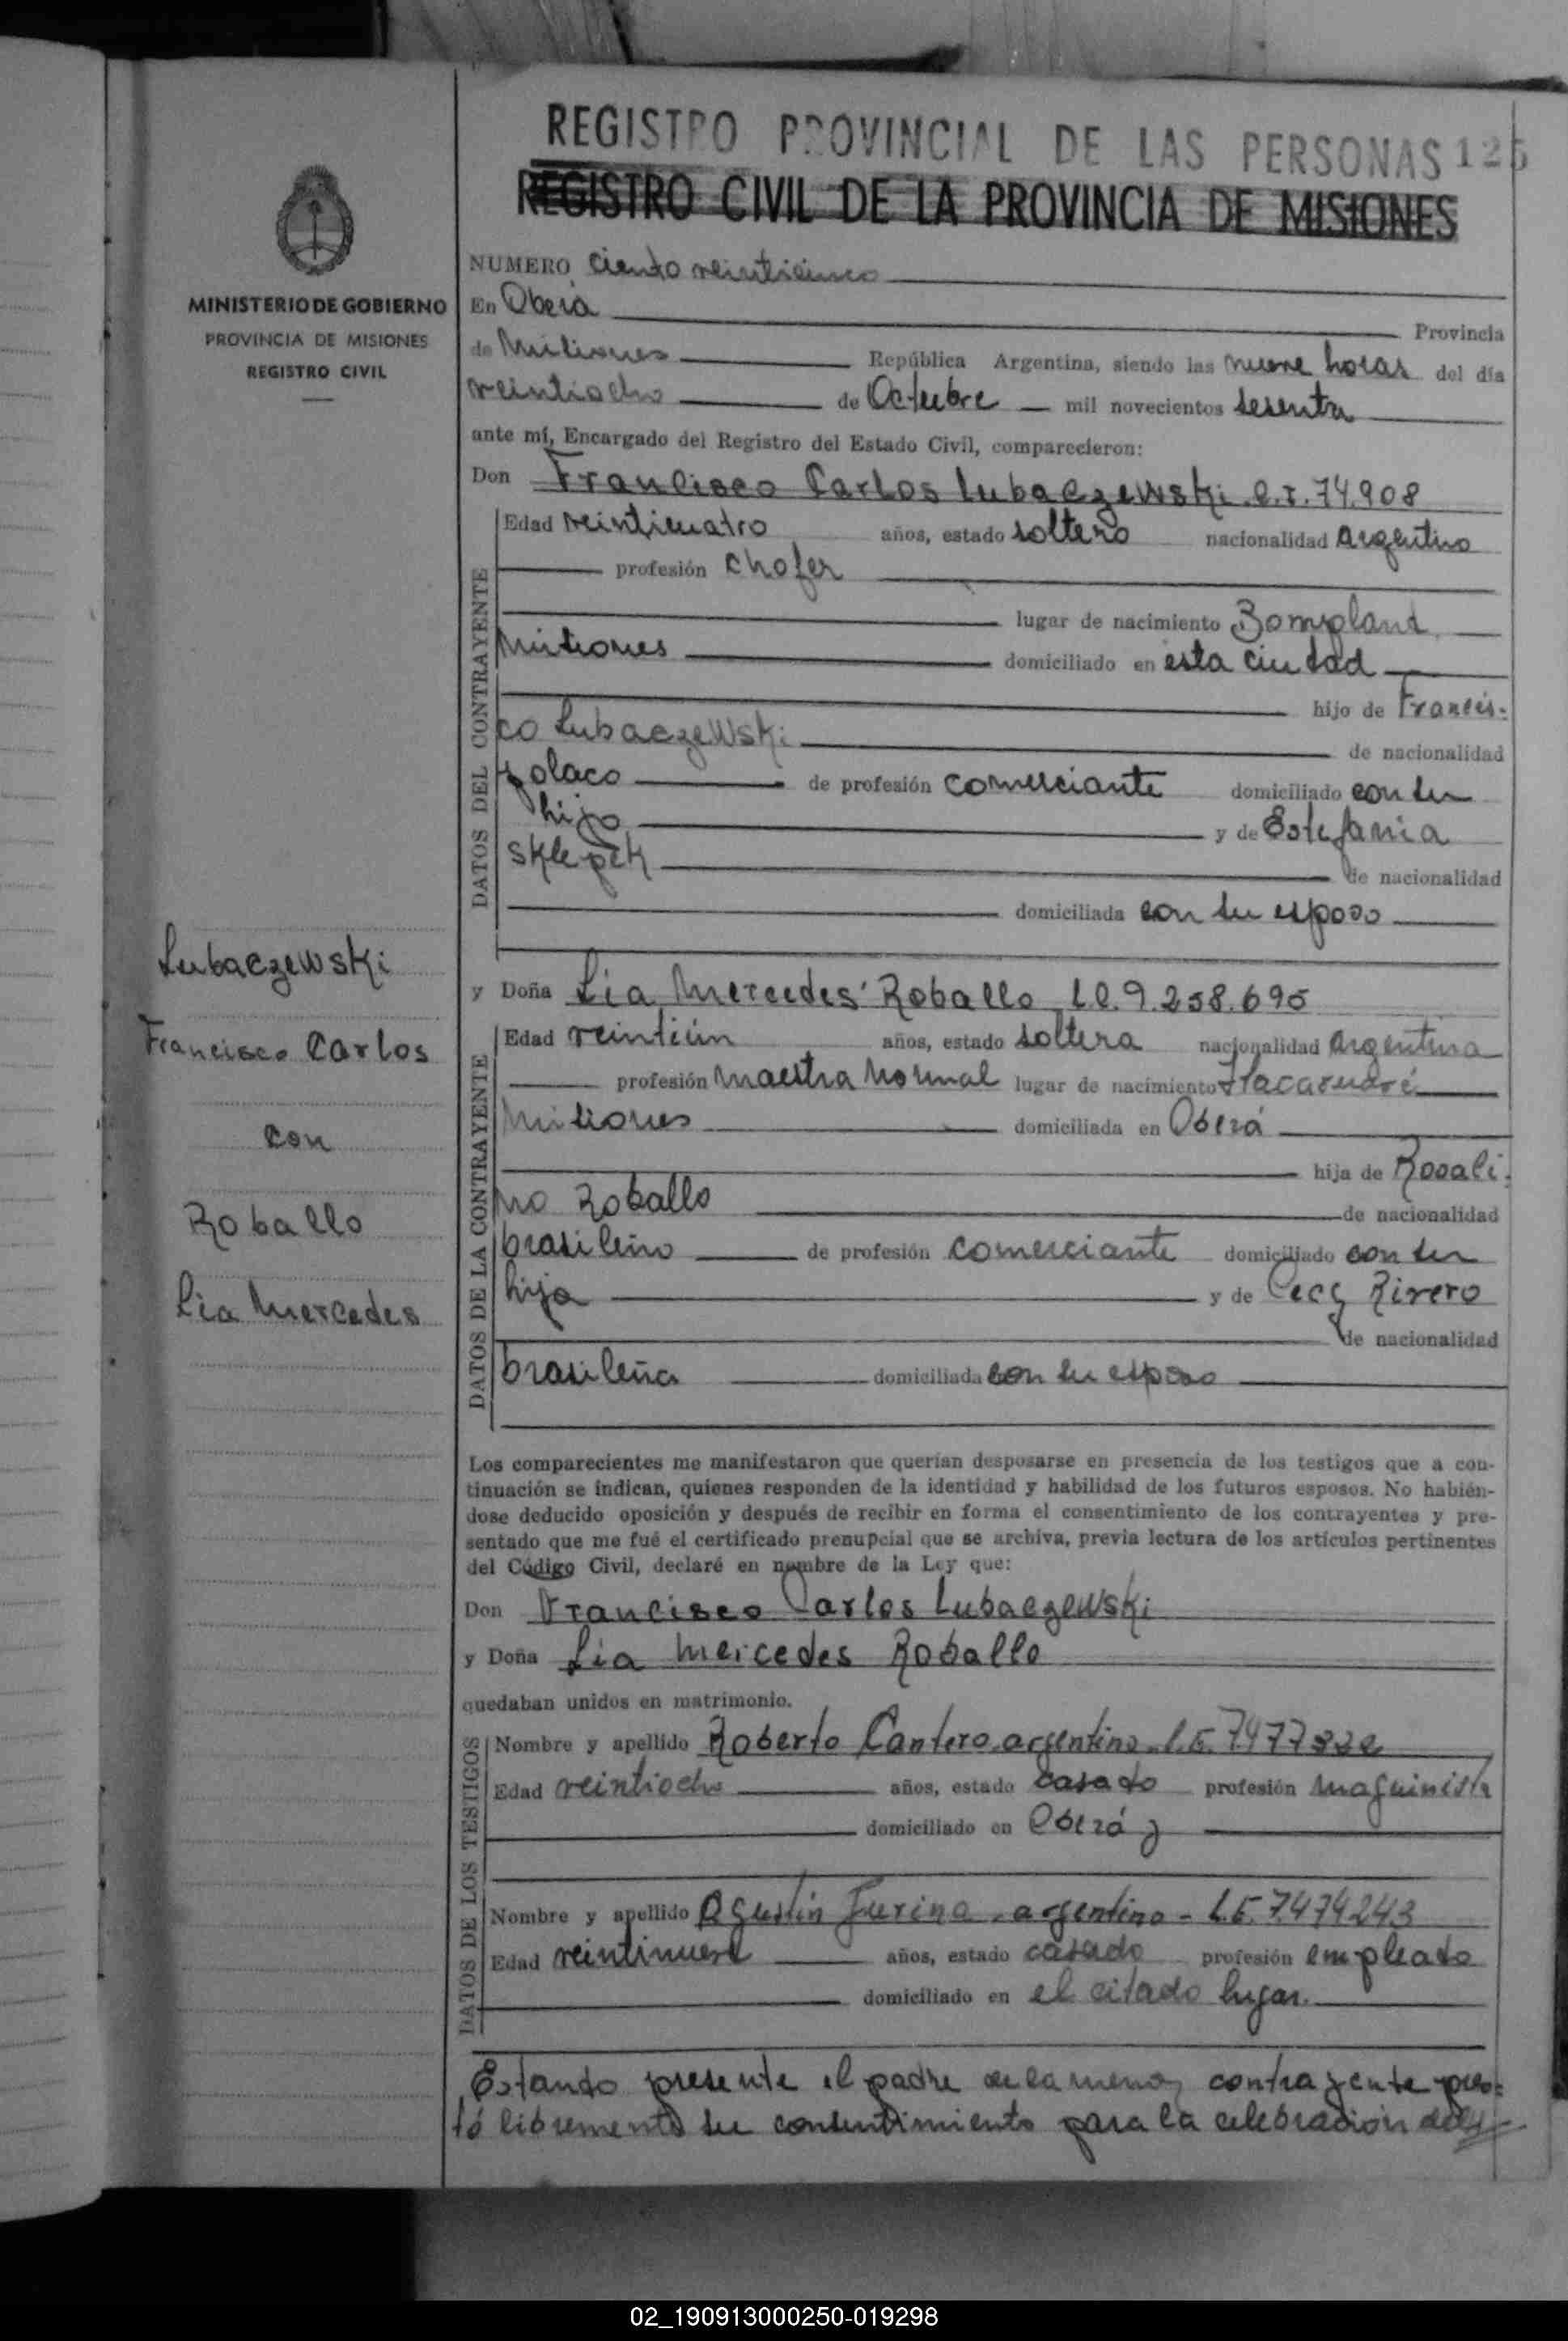 REGISTRO PROVINCIAL DE LAS PERSONAS 125
REGISTRO CIVIL DE LA PROVINCIA DE MISIONES
MINISTERIO DE GOBIERNO
PROVINCIA DE MISIONES
REGISTRO CIVIL
Lubaczewski
Francisco Carlos
con
Roballo
Lia Mercedes
NUMERO ciento veinticinco
En Oberá Provincia
de Misiones República Argentina, siendo las nueve horas del día
veintiocho de Octubre mil novecientos sesenta
ante mí, Encargado del Registro del Estado Civil, comparecieron:
Don Francisco Carlos Lubaczewski C.I. 74.908
DATOS DEL CONTRAYENTE
Edad veinticuatro años, estado soltero nacionalidad argentino
profesión chofer
lugar de nacimiento Bompland
Misiones domiciliado en esta ciudad
hijo de Francis-
co Lubaczewski de nacionalidad
polaco de profesión comerciante domiciliado con su
hijo y de Estefania
Sklepek de nacionalidad
domiciliada con su esposo
y Doña Lia Mercedes Roballo L.C. 9.258.695
DATOS DE LA CONTRAYENTE
Edad veintiún años, estado soltera nacionalidad argentina
profesión Maestra Normal lugar de nacimiento Itacaruaré
Misiones domiciliada en Oberá
hija de Rosali-
no Roballo de nacionalidad
brasileño de profesión comerciante domiciliado con su
hija y de Cecy Rivero
de nacionalidad
brasileña domiciliada con su esposo
Los comparecientes me manifestaron que querían desposarse en presencia de los testigos que a con-
tinuación se indican, quienes responden de la identidad y habilidad de los futuros esposos. No habién-
dose deducido oposición y después de recibir en forma el consentimiento de los contrayentes y pre-
sentado que me fué el certificado prenupcial que se archiva, previa lectura de los artículos pertinentes
del Código Civil, declaré en nombre de la Ley que:
Don Francisco Carlos Lubaczewski
y Doña Lia Mercedes Roballo
quedaban unidos en matrimonio.
DATOS DE LOS TESTIGOS
Nombre y apellido Roberto Cantero argentino L.E. 7477332
Edad veintiocho años, estado casado profesión maquinista
domiciliado en Oberá y
Nombre y apellido Agustín Jurina, argentino - L.E. 7.474243
Edad veintinueve años, estado casado profesión empleado
domiciliado en el citado lugar.
Estando presente el padre de la menor contrayente pres-
tó libremente su consentimiento para la celebración del
02_190913000250-019298